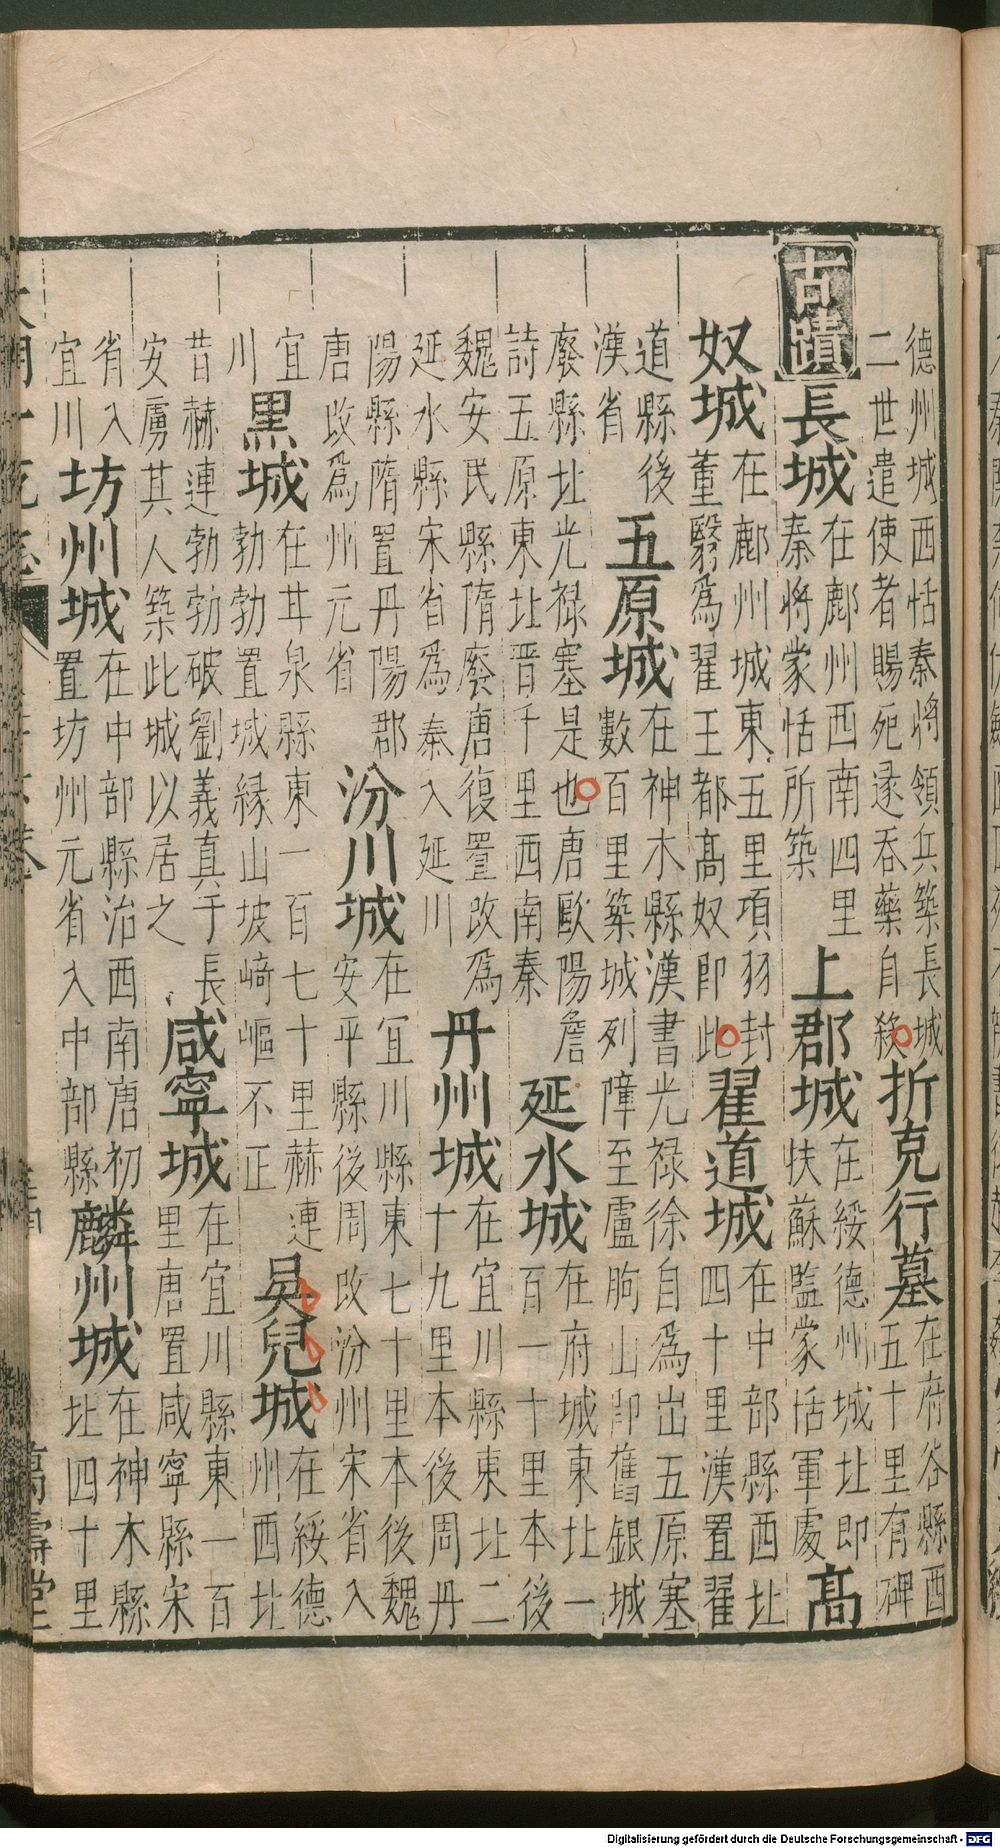 德州城西恬秦將領兵築長城
二世遣使者賜死遂吞藥自殺
折克行墓
在府谷縣西
五十里有碑
古蹟
長城
在鄜州西南四里
秦將蒙恬所築
上郡城
在綏德州城北即
扶蘇監蒙恬軍處
高
奴城
在鄜州城東五里項羽封
董翳爲翟王都高奴即此
翟道城
在中部縣西北
四十里漢置翟
道縣後
漢省
五原城
在神木縣漢書光祿徐自爲出五原塞
數百里築城列障至盧朐山即舊銀城
廢縣北光祿塞是也唐歐陽詹
詩五原東北晋千里西南秦
延水城
在府城東北一
百一十里本後
魏安民縣隋廢唐復置改爲
延水縣宋省爲秦入延川
丹州城
在宜川縣東北二
十九里本後周丹
陽縣隋置丹陽郡
唐改爲州元省
汾川城
在宜川縣東七十里本後魏
安平縣後周改汾州宋省入
宜
川
黑城
在甘泉縣東一百七十里赫連
勃勃置城緣山坡崎嶇不正
吳兒城
在綏德
州西北
昔赫連勃勃破劉義真于長
安虜其人築此城以居之
咸寧城
在宜川縣東一百
里唐置咸寧縣宋
省入
宜川
坊州城
在中部縣治西南唐初
置坊州元省入中部縣
麟州城
在神木縣
北四十里
萬壽堂
Digitalisierung gefördert durch die Deutsche Forschungsgemeinschaft - DFG